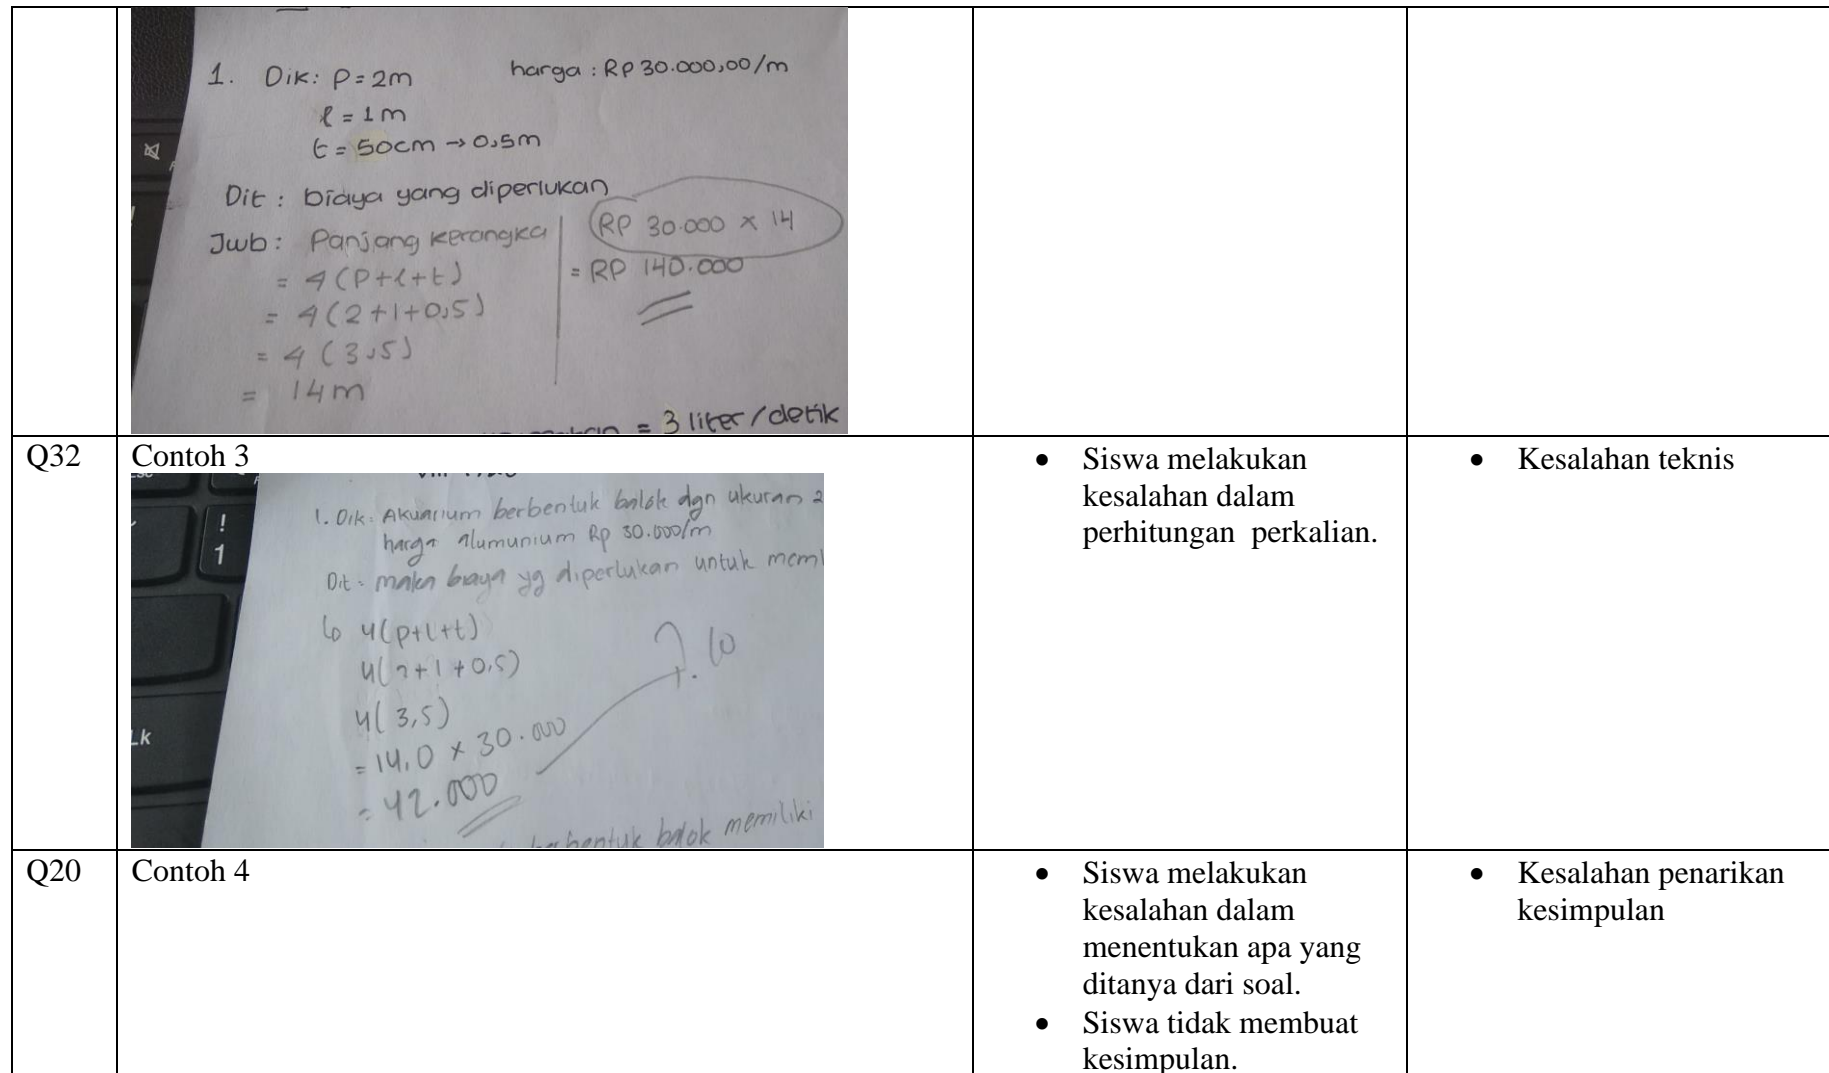 1. Dik: P = 2m harga : RP 30.000,00/m
l = 1 m
t = 50cm → 0,5m
Dit : biaya yang diperlukan
Jwb : Panjang kerangka
= 4 (P+l+t)
= 4 (2+1+0,5)
= 4 (3,5)
= 14 m
RP 30.000 × 14
= RP 140.000
= 3 liter / detik
Q32
Contoh 3
1. Dik: Akuarium berbentuk balok dgn ukuran 2
harga alumunium Rp 30.000/m
Dit : maka biaya yg diperlukan untuk mem
4(p+l+t)
4(2+1+0,5)
4(3,5)
= 14,0 × 30.000
= 42.000
berbentuk balok memiliki
! 1
Lk
• Siswa melakukan
kesalahan dalam
perhitungan perkalian.
• Kesalahan teknis
Q20
Contoh 4
• Siswa melakukan
kesalahan dalam
menentukan apa yang
ditanya dari soal.
• Siswa tidak membuat
kesimpulan.
• Kesalahan penarikan
kesimpulan